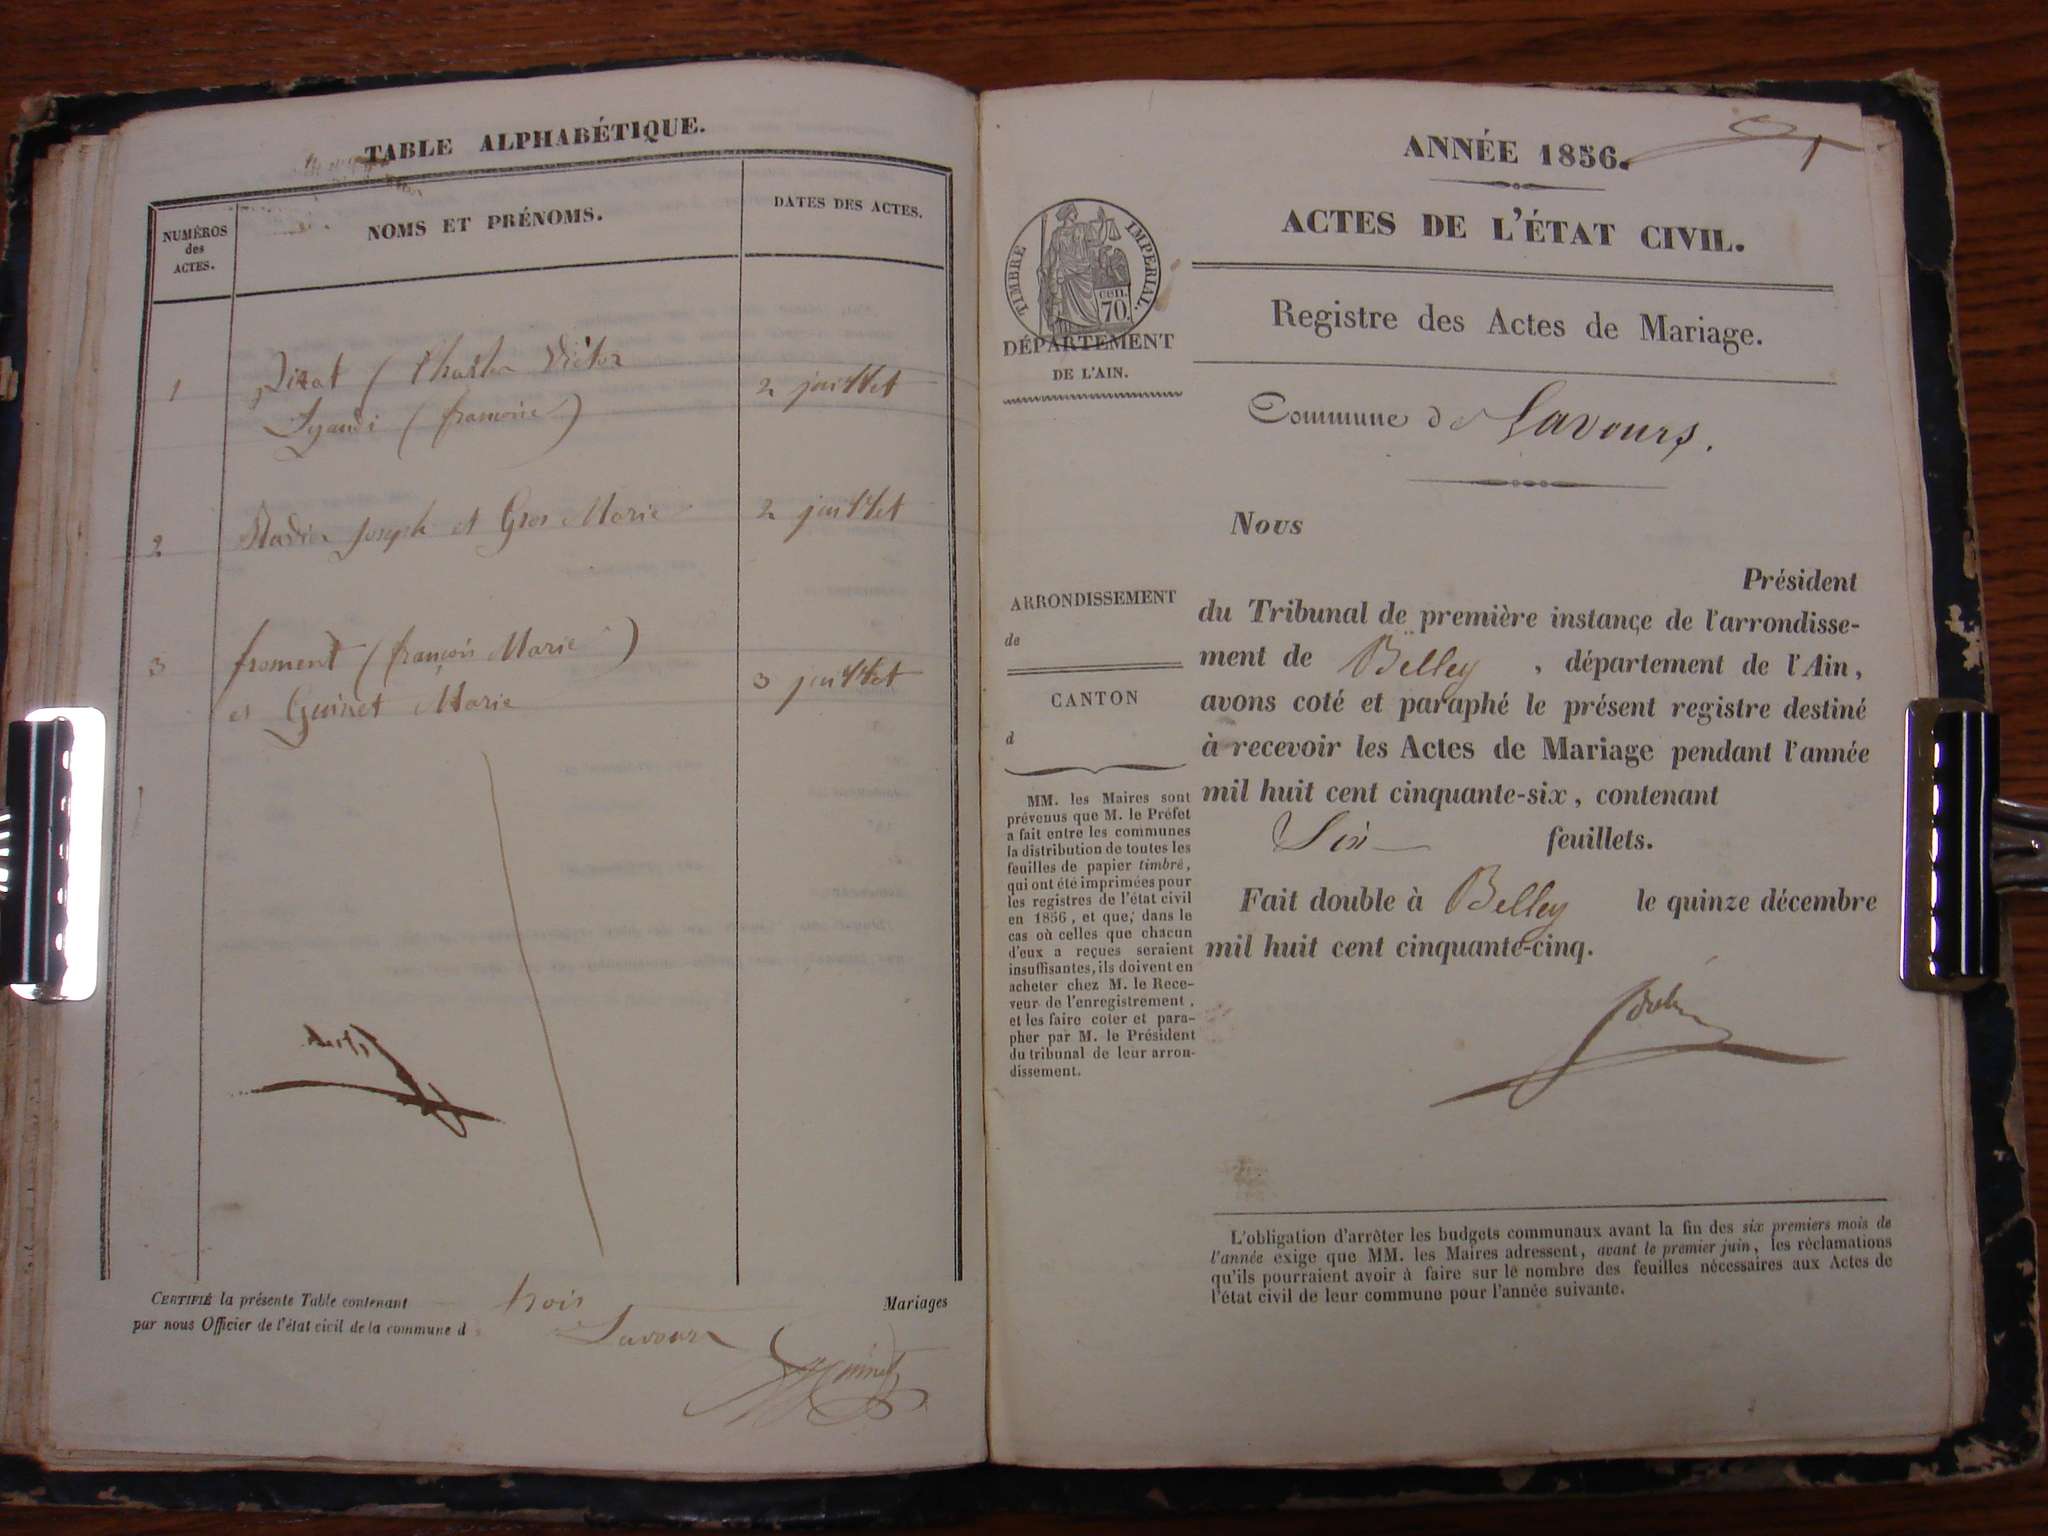 TABLE ALPHABÉTIQUE.
NUMÉROS
des
ACTES.
NOMS ET PRÉNOMS.
DATES DES ACTES.
1
(Charles Victor
(françoise)
2 juillet
2
Joseph et Gros Marie
2 juillet
3
froment (françois Marie)
et Guinet Marie
3 juillet
CERTIFIÉ la présente Table contenant trois Mariages
par nous Officier de l'état civil de la commune d Lavours
Guinet
1
ANNÉE 1856.
ACTES DE L'ÉTAT CIVIL.
TIMBRE IMPERIAL.
CEN.
70.
DÉPARTEMENT
DE L'AIN.
Registre des Actes de Mariage.
Commune de Lavours.
Nous
Président
du Tribunal de première instance de l'arrondisse-
ment de Belley, département de l'Ain,
avons coté et paraphé le présent registre destiné
à recevoir les Actes de Mariage pendant l'année
mil huit cent cinquante-six, contenant
Six feuillets.
Fait double à Belley le quinze décembre
mil huit cent cinquante-cinq.
ARRONDISSEMENT
de
CANTON
d
MM. les Maires sont
prévenus que M. le Préfet
a fait entre les communes
la distribution de toutes les
feuilles de papier timbré,
qui ont été imprimées pour
les registres de l'état civil
en 1856, et que, dans le
cas où celles que chacun
d'eux a reçues seraient
insuffisantes, ils doivent en
acheter chez M. le Rece-
veur de l'enregistrement,
et les faire coter et para-
pher par M. le Président
du tribunal de leur arron-
dissement.
L'obligation d'arrêter les budgets communaux avant la fin des six premiers mois de
l'année exige que MM. les Maires adressent, avant le premier juin, les réclamations
qu'ils pourraient avoir à faire sur le nombre des feuilles nécessaires aux Actes de
l'état civil de leur commune pour l'année suivante.